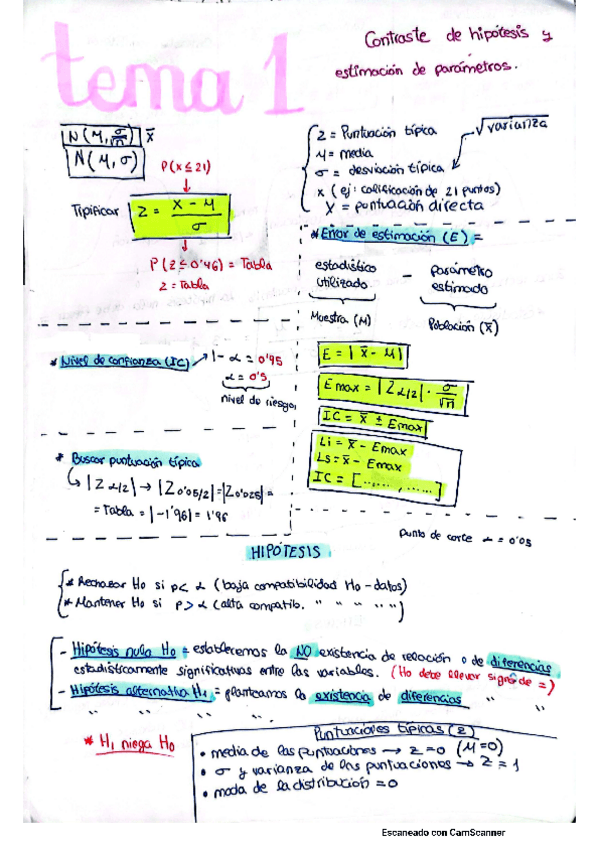 tema 1
Contraste de hipótesis y
estimación de parámetros.
N(μ, σ/√n) x̄
N(μ, σ)
P(x ≤ 21)
Tipificar z = x - μ / σ
P(z ≤ 0'46) = Tabla
z = Tabla
z = Puntuación típica
√varianza
μ = media
σ = desviación típica
x (ej: calificación de 21 puntos)
X = puntuación directa
* Error de estimación (E) =
estadístico utilizado - parámetro estimado
Muestra (μ) Población (x̄)
* Nivel de confianza (IC) → 1-α = 0'95
α = 0'5
nivel de riesgo
E = |x̄ - μ|
Emax = |Zα/2| · σ/√n
IC = x̄ ± Emax
Li = x̄ - Emax
Ls = x̄ - Emax
IC = [......, ......]
* Buscar puntuación típica
↳ |Zα/2| → |Z0'05/2| = |Z0'025| =
= Tabla = |-1'96| = 1'96
Punto de corte α = 0'05
HIPÓTESIS
* Rechazar Ho si p < α (baja compatibilidad Ho - datos)
* Mantener Ho si p > α (alta compatib. " " " ")
- Hipótesis nula Ho = establecemos la NO existencia de relación o de diferencias
estadísticamente significativas entre las variables. (Ho debe llevar signo de =)
- Hipótesis alternativa H1 = planteamos la existencia de diferencias " "
" " " "
* H1 niega Ho
Puntuaciones típicas (z)
• media de las puntuaciones → z = 0 (μ = 0)
• σ y varianza de las puntuaciones → z = 1
• moda de la distribución = 0
Escaneado con CamScanner